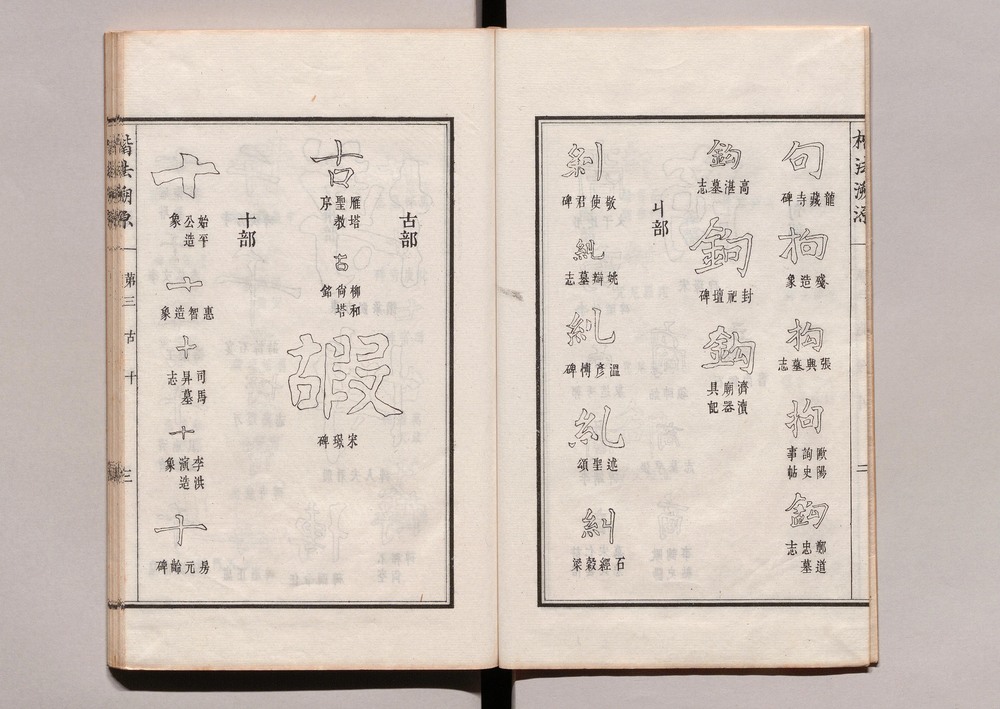 句
龍藏寺碑
拘
殘造象
拘
張興墓志
拘
歐陽詢史事帖
鉤
鄭道忠墓志
鉤
高湛墓志
鉤
封祀壇碑
鉤
濟瀆廟器具記
丩部
糾
敬使君碑
糾
姚辯墓志
糾
溫彥博碑
糾
述聖頌
糾
石經穀梁
古部
古
雁塔聖教序
古
柳尚和塔銘
嘏
宋璟碑
十部
十
始平公造象
十
惠智造象
十
司馬昇墓志
十
李洪演造象
十
房元齡碑
楷法溯原
第三
古
十
三